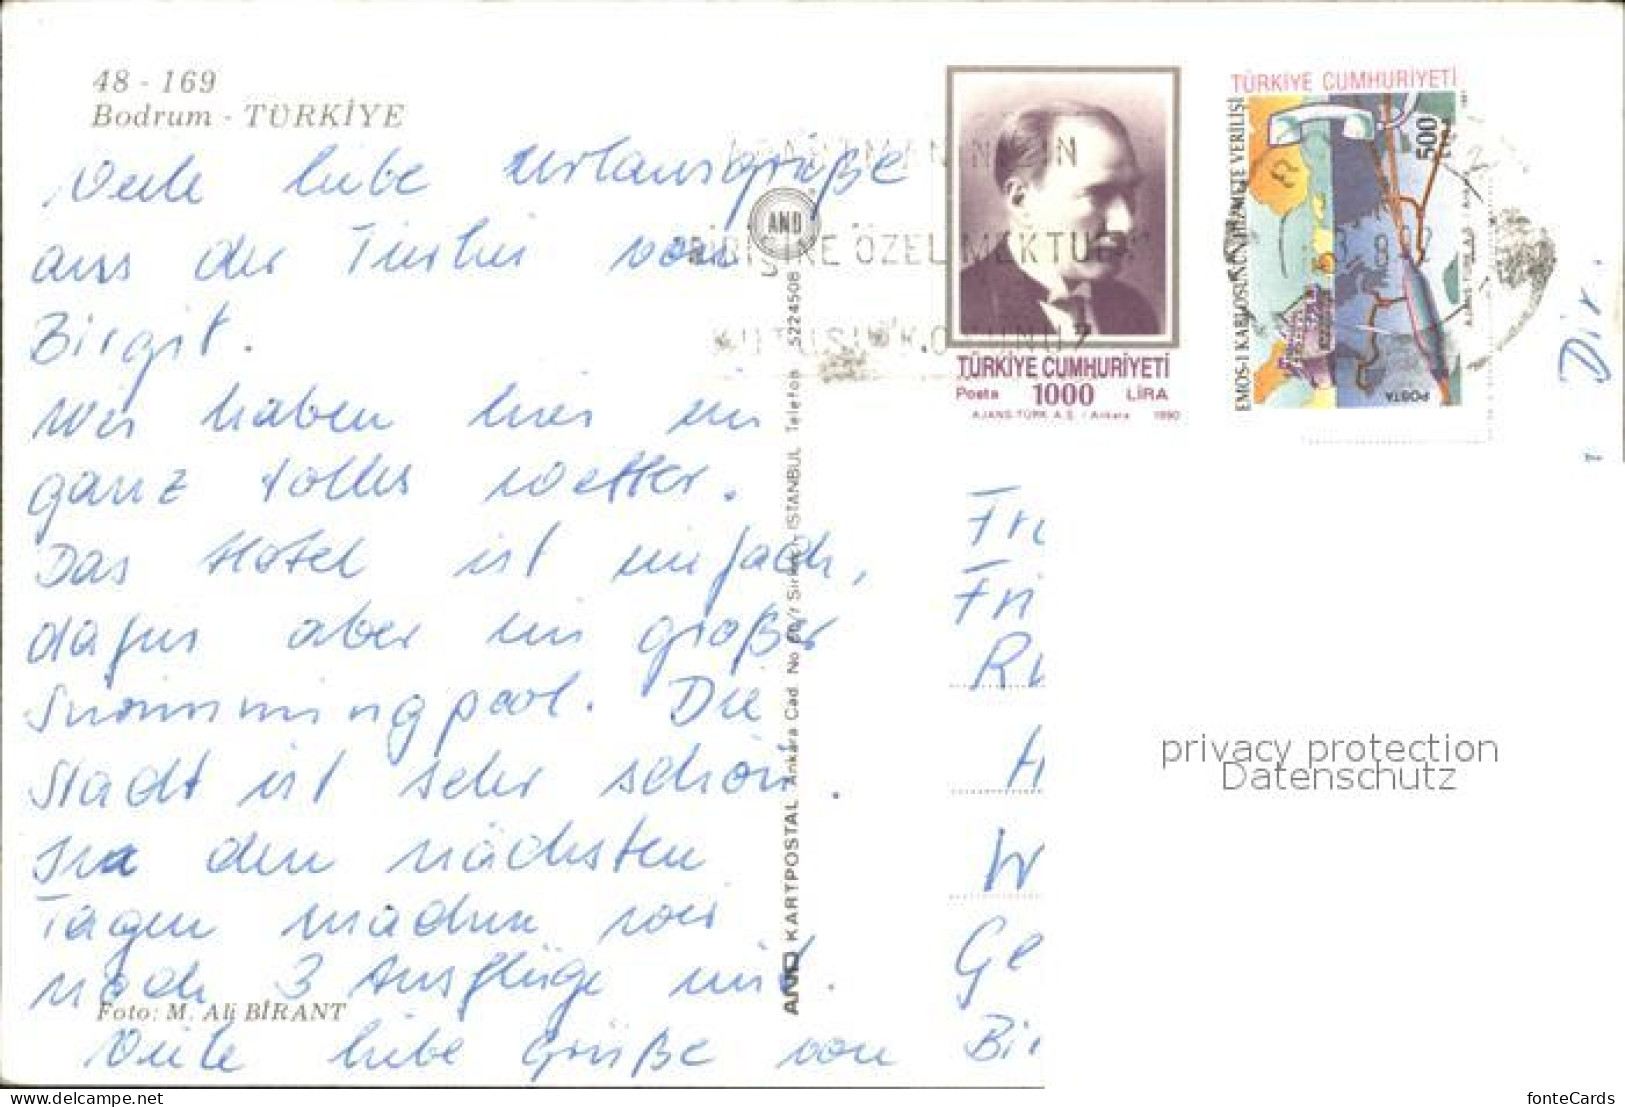 48 - 169
Bodrum - TÜRKİYE
Viele liebe Urlausgrüße
aus der Türkei von
Birgit.
Wir haben hier ein
ganz tolles Wetter.
Das Hotel ist einfach,
dafür aber ein großer
Swimmingpool. Die
Stadt ist sehr schön.
In den nächsten
Tagen machen wir
noch 3 Ausflüge mit.
Foto: M. Ali BİRANT
Viele liebe Grüße von
AND
AND KARTPOSTAL Ankara Cad. No Sirkeci - ISTANBUL Telefon 5224508
BİRİSİNE ÖZEL MEKTUP
KUTUSU KOYUNUZ
TÜRKİYE CUMHURİYETİ
Posta 1000 LİRA
AJANS-TÜRK A.Ş. / Ankara 1990
TÜRKİYE CUMHURİYETİ
EMOS-1 KABLOSUNUN HİZMETE VERİLİŞİ
500
LİRA
POSTA
Dir.
Fr
Fri
Ru
H
W
Ge
Bi
privacy protection
Datenschutz
www.ansichtskartenversand.com
fonteCards